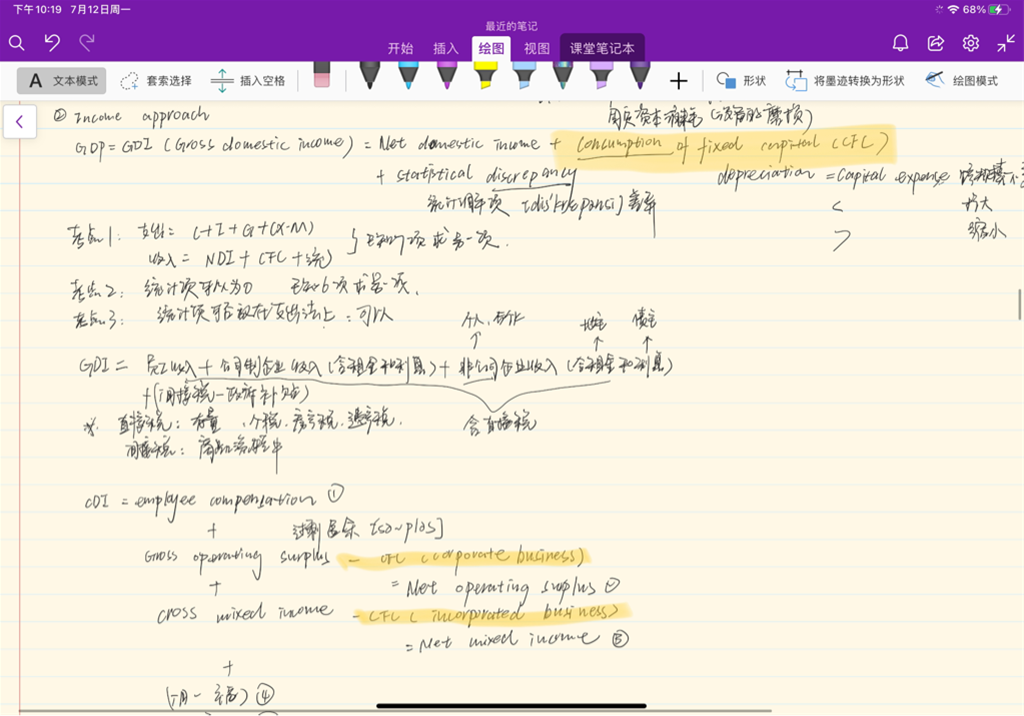 下午10:19 7月12日周一
68%
最近的笔记
开始 插入 绘图 视图 课堂笔记本
A 文本模式 套索选择 插入空格 形状 将墨迹转换为形状 绘图模式
固定资本消耗(设备的磨损)
② Income approach
GDP = GDI (Gross domestic income) = Net domestic income + Consumption of fixed capital (CFC)
+ statistical discrepancy
depreciation = capital expense
统计
差异
< 扩大
> 缩小
考点1: 支出 = C+I+G+(X-M)
收入 = NDI + CFC + 统
} 已知 项求另一项.
考点2: 统计项可以为0 已知6项求总项.
考点3: 统计项可否放在支出法上: 可以
个人, 合伙 地主 债主
↑ ↑ ↑
GDI = 员工收入 + 公司制企业收入 (含租金和利息) + 非公司企业收入 (含租金和利息)
+ (间接税 - 政府补贴)
含直接税
※ 直接税: 存量, 个税. 房产税. 遗产税.
间接税: 商品流转中
GDI = employee compensation ①
+ 过剩盈余
Gross operating surplus - CFC (corporate business)
+ = Net operating surplus ②
Gross mixed income - CFC (incorporated business)
= Net mixed income ③
+
④